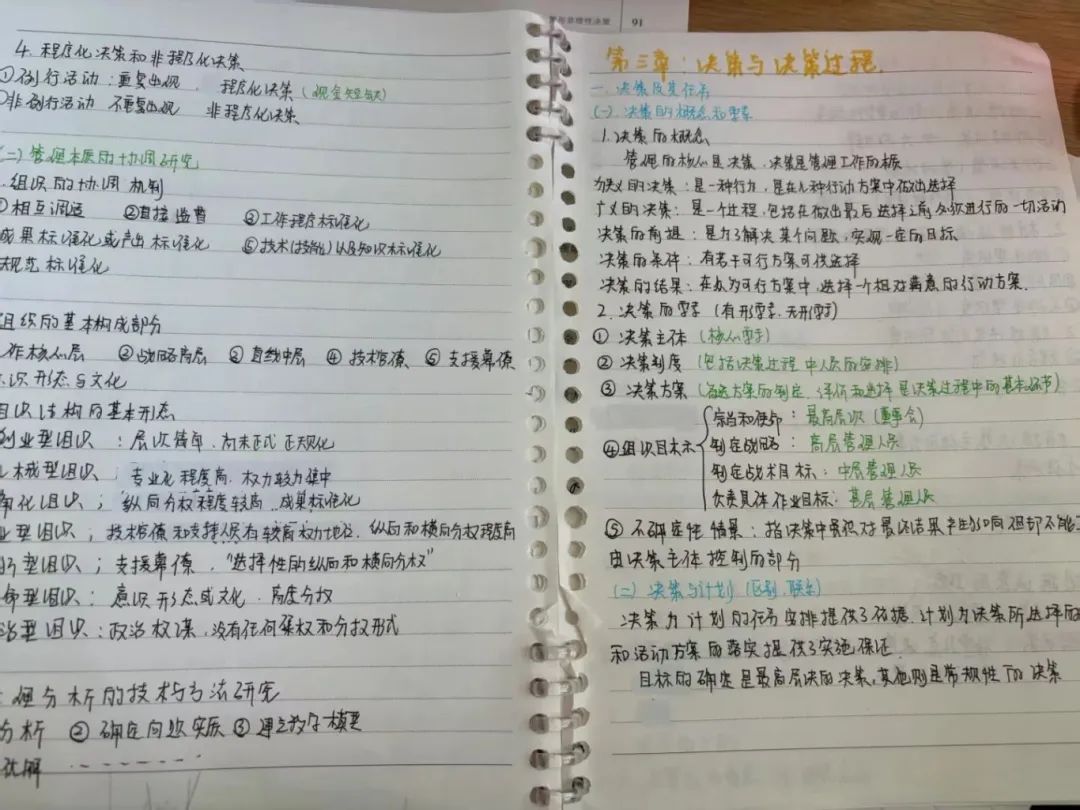 91
4. 程序化决策和非程序化决策
①例行活动：重复出现， 程序化决策（现金短缺）
非例行活动 不重复出现 非程序化决策
二）管理本质的协调研究
组织的协调机制
①相互调适 ②直接监督 ③工作程序标准化
成果标准化或产出标准化 ⑤技术（技能）以及知识标准化
规范标准化
组织的基本构成部分
作核心层 ②战略高层 ③直线中层 ④技术官僚 ⑤支援幕僚
识形态与文化
组织结构的基本形态
创业型组织 ：层次简单，尚未正式正规化
机械型组织；专业化程度高，权力较为集中
化组织；纵向分权程度较高，成果标准化
业型组织；技术官僚和支持人员有较高权力地位，纵向和横向分权程度高
型组织；支援幕僚，“选择性的纵向和横向分权”
命型组织：意识形态或文化，高度分权
治型组织：政治权谋，没有任何集权和分权形式
理分析的技术与方法研究
分析 ②确定问题实质 ③建立数学模型
优解 - - - - - -
第三章：决策与决策过程
一、决策及其任务
（一）决策的概念和要素
1. 决策的概念
管理的核心是决策，决策是管理工作的本质
狭义的决策：是一种行为，是在几种行动方案中做出选择
广义的决策：是一个过程，包括在做出最后选择之前必须进行的一切活动
决策的前提：是为了解决某个问题，实现一定的目标
决策的条件：有若干可行方案可供选择
决策的结果：在众多可行方案中，选择一个相对满意的行动方案.
2. 决策的要素（有形要素，无形要素）
① 决策主体（核心要素）
② 决策制度（包括决策过程中人员的安排）
③ 决策方案（备选方案的制定、评价和选择是决策过程中的基本环节）
④组织目标
宗旨和使命：最高层次（董事会）
制定战略：高层管理人员
制定战术目标：中层管理人员
负责具体作业目标：基层管理人员
⑤ 不确定性情景：指决策中虽然对最终结果产生影响但却不能
由决策主体控制的部分
（二）决策与计划（区别，联系）
决策为计划的任务安排提供了依据，计划为决策所选择的
和活动方案的落实提供了实施保证.
目标的确定是最高层次的决策，其他则是常规性的决策